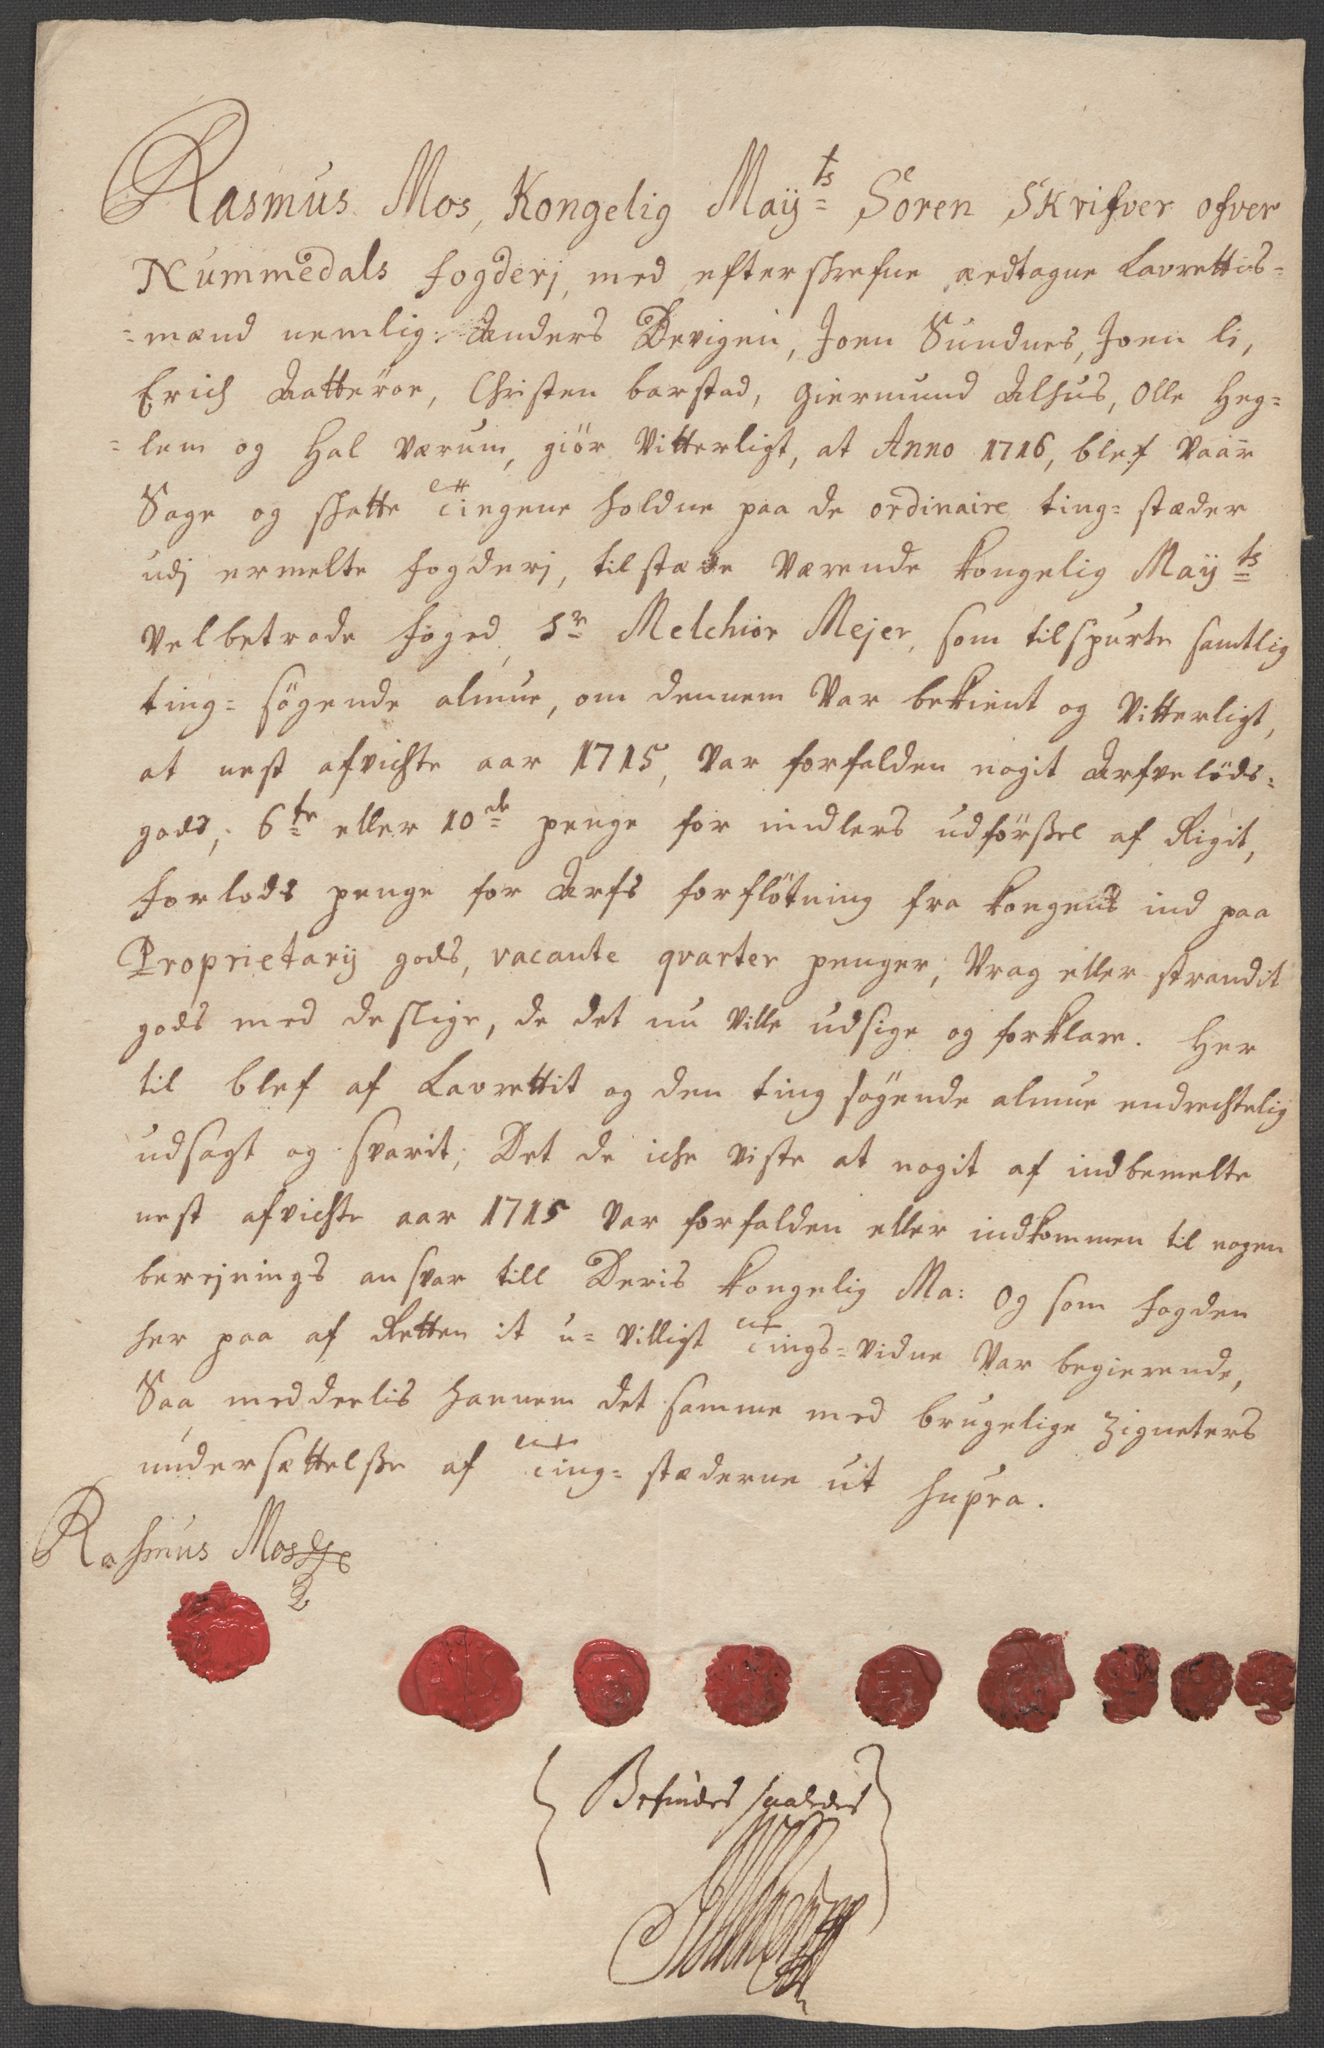 Rasmus Mos, Kongelig Maÿ:ts Soren Skrifver ofver
Nummedals fogderj, med efterskrefne ædtagne Laurettis-
-mænd nemlig: Anders Devigen, Joen Sundnes, Joen li,
Erich Aatterøe, Christen barstad, Giermund Alhus, Olle Heg-
-lem og Hal Værum, giör Vitterligt, at Anno 1716, blef Vaar
Sage og skatte Tingene holdne paa de ordinaire ting-stæder
udj ermelte fogderj, tilstæde Værende kongelig Maÿ:ts
Velbetrode foged, Sr Melchior Mejer, som tilspurte samtlig
ting-søgende almue, om dennem Var bekient og Vitterligt,
at nest afvichte aar 1715, Var forfalden nogit Arfvelöds-
gods, 6te eller 10de penge for midlers udförßel af Rigit,
forlods penge for Arfs forflötning fra kongens ind paa
Proprietarÿ gods, vacante qvarter penger, Vrag eller strandit
gods med deslige, de det nu Ville udsige og forklare. Her
til blef af Laurettit og den ting søgende almue endrechtelig
udsagt og svarit; Det de iche Viste at nogit af indbemelte
nest afvichte aar 1715 Var forfalden eller indkommen til nogen
berejnings ansvar till Deris kongelig Ma: Og som fogden
her paa af Retten it u-villigt Tings-vidne Var begierende,
Saa meddeelis hannem det samme med brugelige Zigneters
undersættelße af Ting-stæderne uit supra.
Rasmus Mos
Befindes saaledes